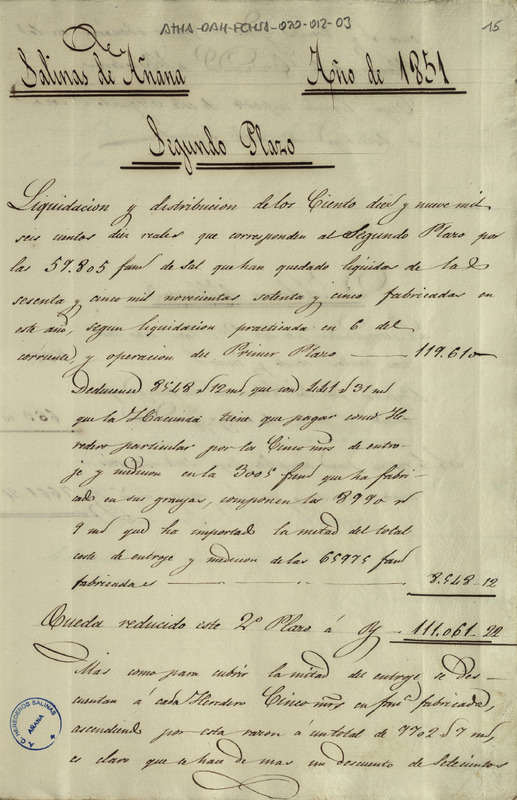 ATHA-DAH-FCHSA-020-012-03
15
De
Salinas de Añana Año de 1851
Segundo Plazo
Liquidacion y distribucion de los Ciento diez y nueve mil
seis cientos diez reales que corresponden al Segundo Plazo por
las 59.805 fans de Sal que han quedado liquidas de la
sesenta y cinco mil novecientas setenta y cinco fabricadas en
este año, segun liquidacion practicada en 6 del
corriente, y operacion del Primer Plazo 119.610
Deducense 8548 12 ms, que con 31 ms
que la Hacienda tiene que pagar como He-
redero particular por los Cinco mrs de entro-
je y medicion en la 3005 fans que ha fabri-
cado en sus granjas, componen las 8990 rs
9 ms que ha importado la mitad del total
coste de entroje y medicion de las 65975 fans
fabricadas 8.548-12
Queda reducido este 2º Plazo á 111.061-22
Mas como para cubrir la mitad del entroje se des-
cuentan á cada Heredero Cinco mrs en fanª fabricada,
ascendiendo por esta razon á un total de 9702 7 ms,
es claro que se hace de mas un descuento de Setecientos
A.C. HEREDEROS SALINAS
AÑANA